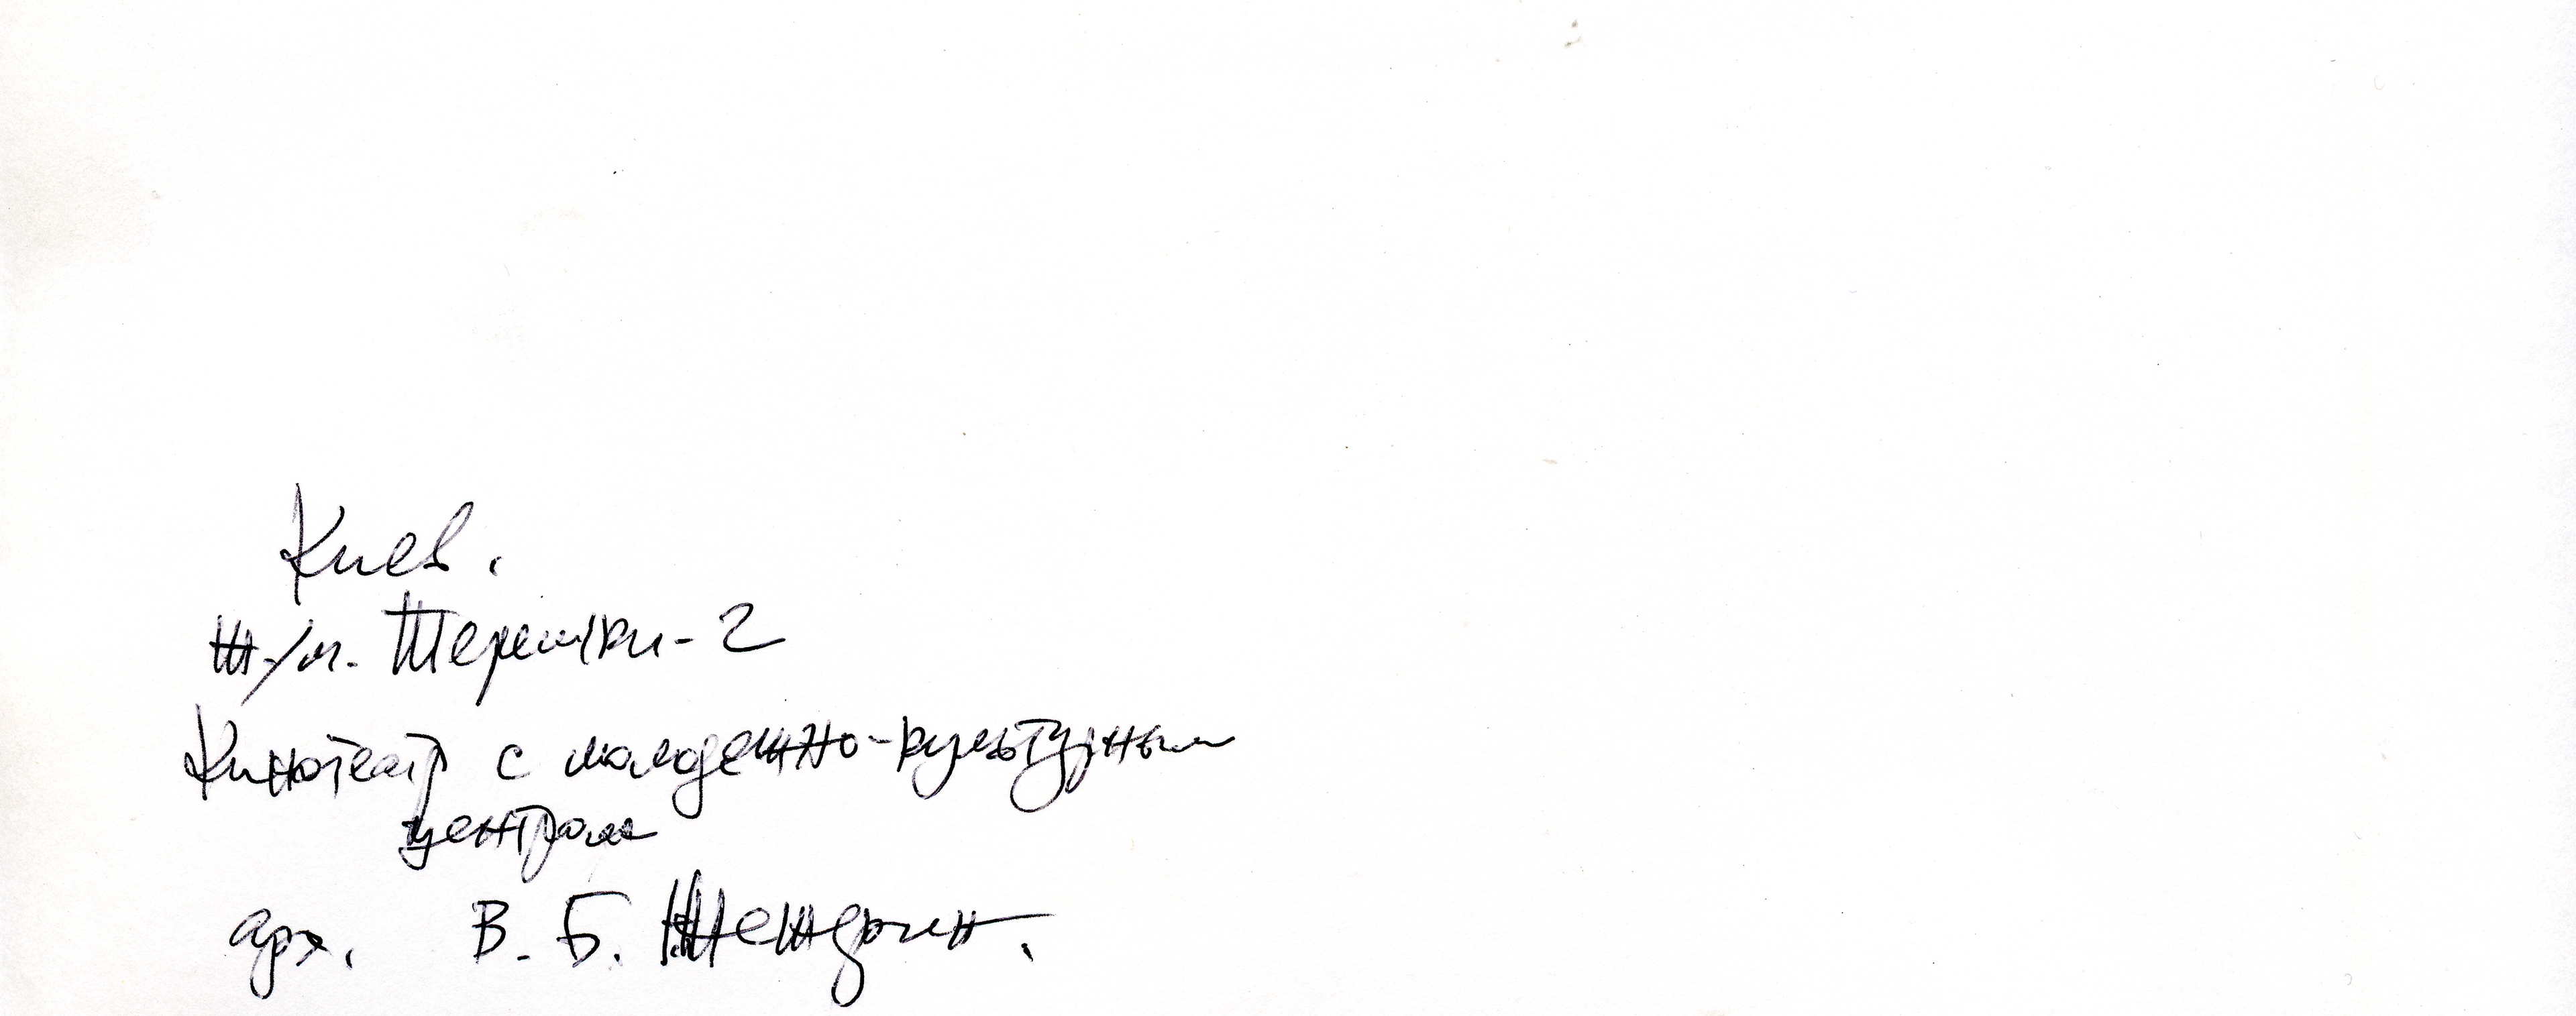 Киев.
Ж/м. Теремки-2
Кинотеатр с молодежно-культурным
центром
арх. В. Б. Жежерин.